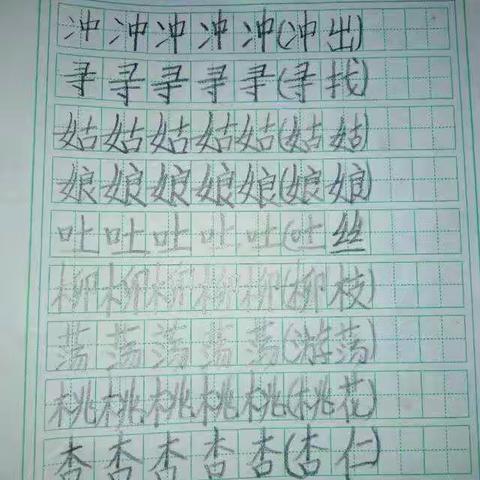 冲冲冲冲冲(冲出)
寻寻寻寻寻(寻找)
姑姑姑姑姑(姑姑)
娘娘娘娘娘(娘娘)
吐吐吐吐吐(吐丝)
柳柳柳柳柳(柳枝)
荡荡荡荡荡(游荡)
桃桃桃桃桃(桃花)
杏杏杏杏杏(杏仁)